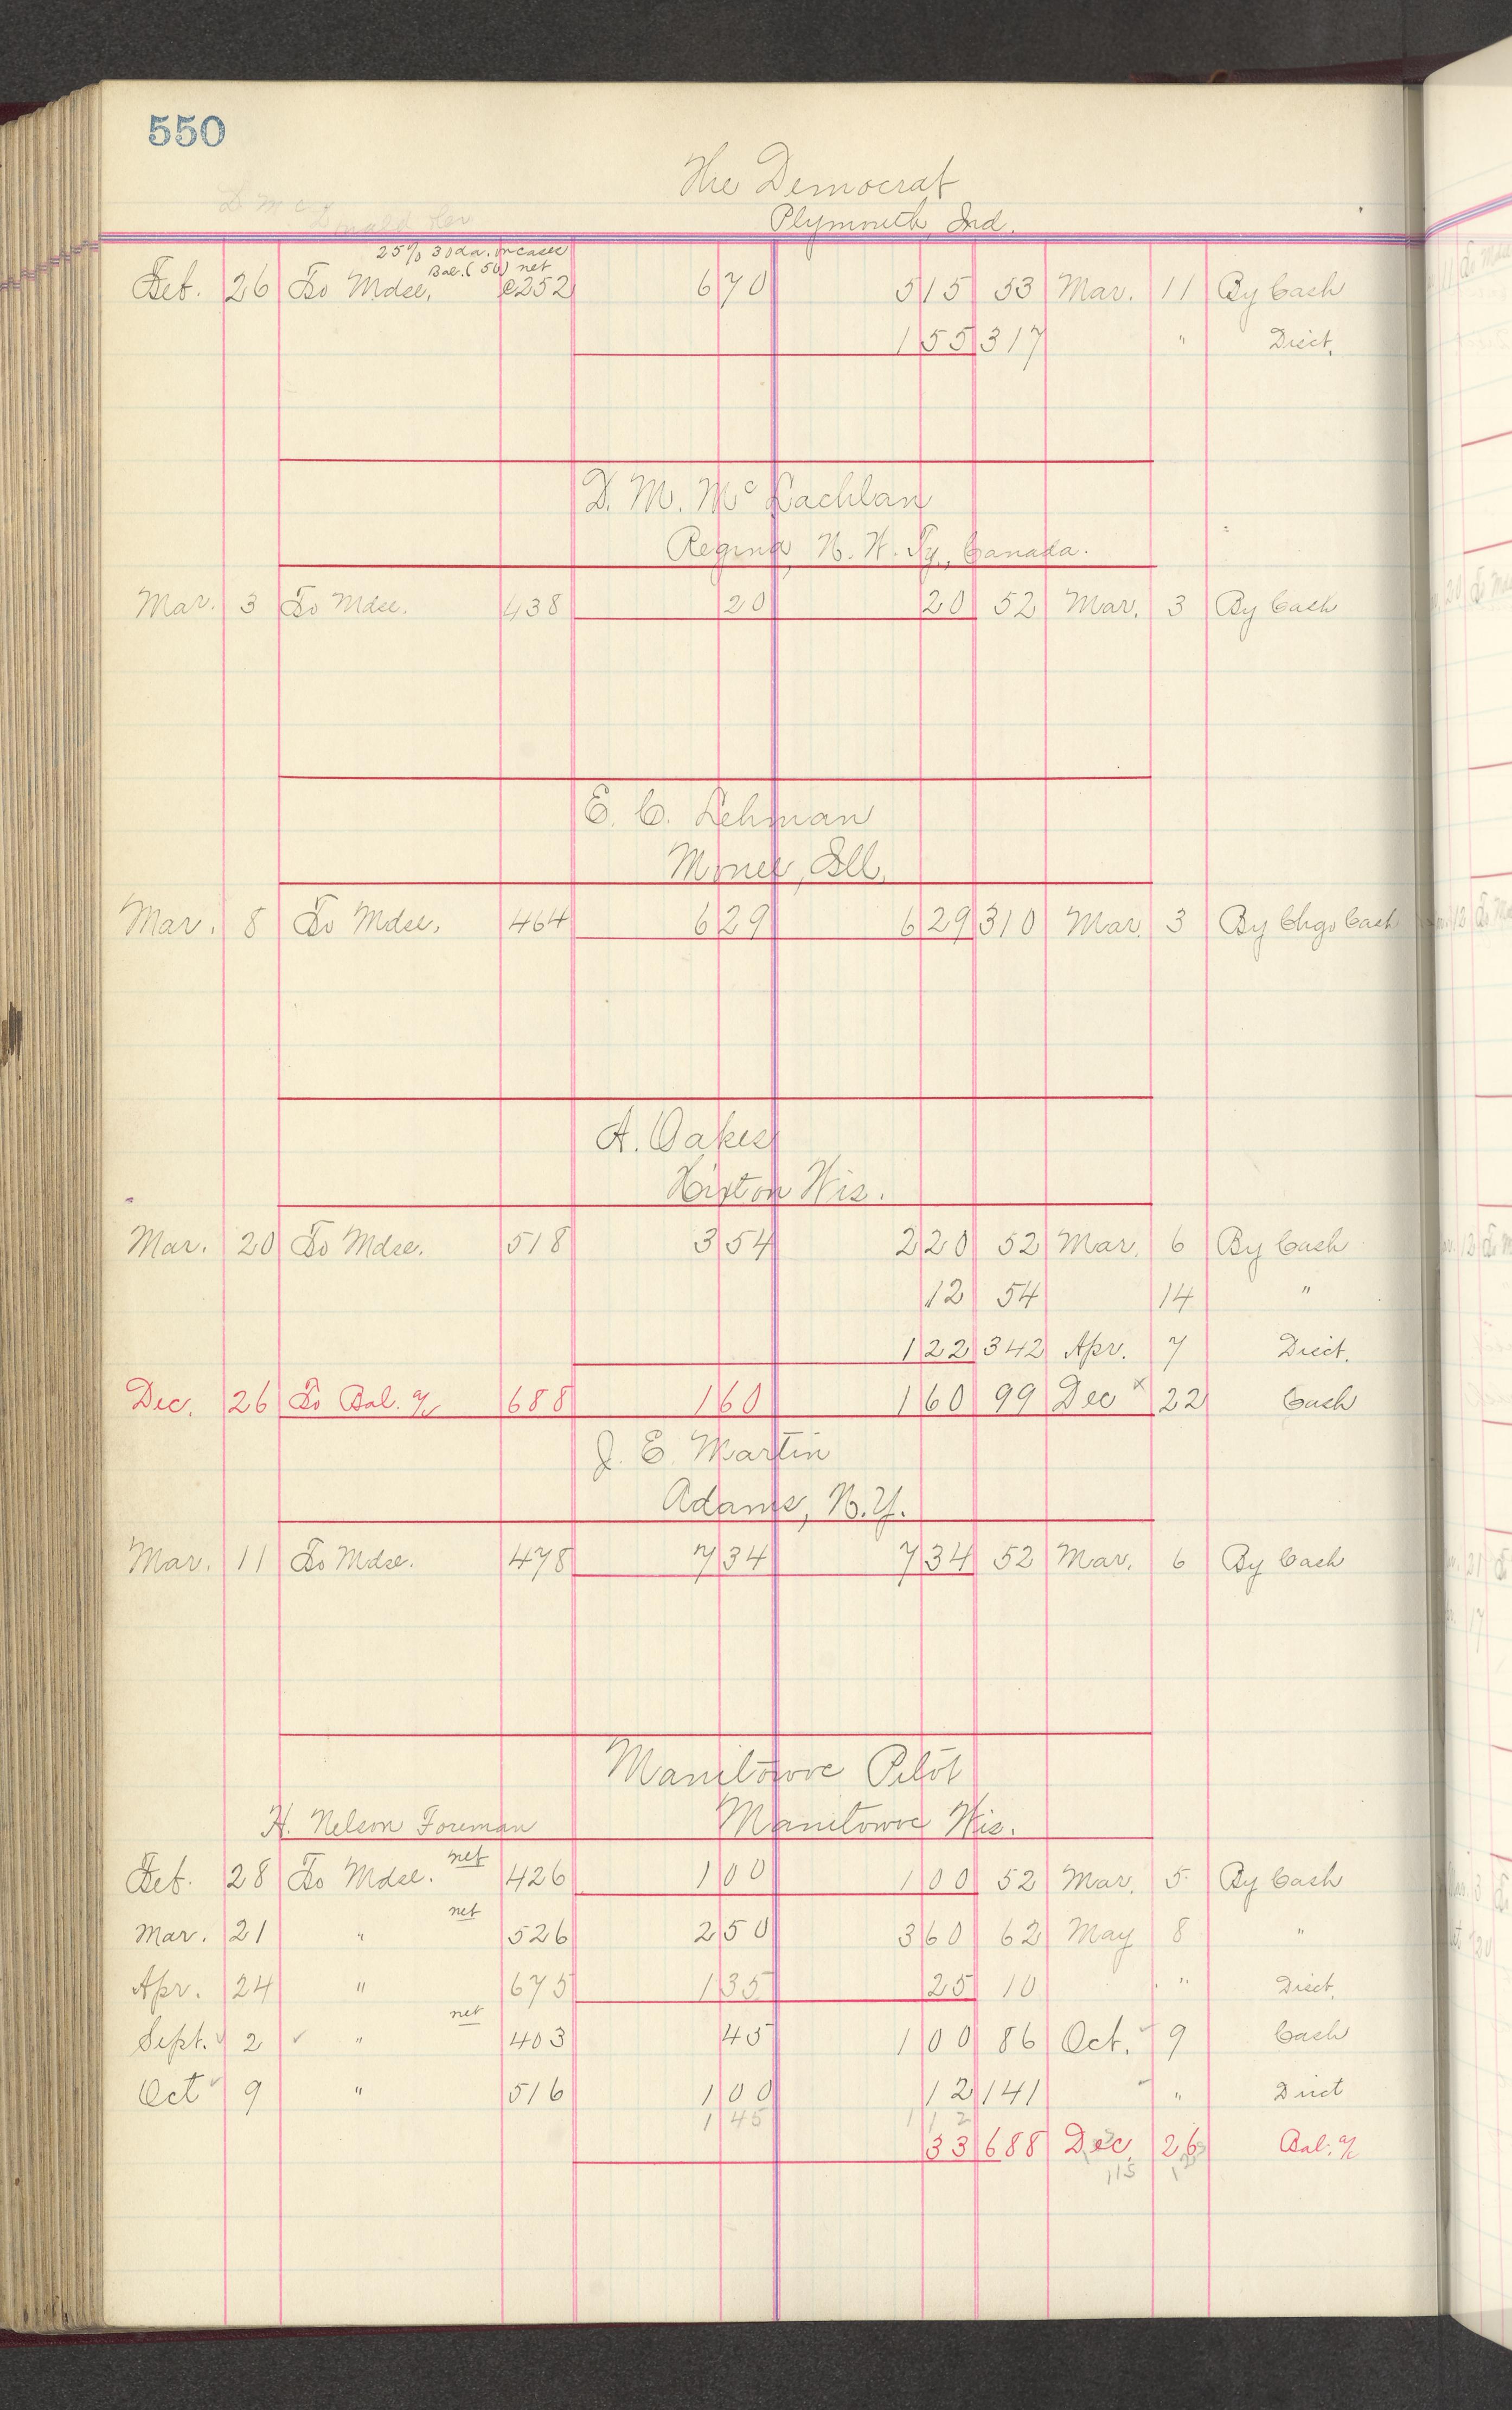 550
The Democrat
Plymouth, Ind.
25% 30 da. in cases
Bal. (50) net
Feb. 26 To Mdse. C252 6 70 5 15 53 Mar. 11 By Cash
1 55 317 " Disct.
D. M. Mc Lachlan
Regina, N. W. Ty., Canada.
Mar. 3 To Mdse. 438 20 20 52 Mar. 3 By Cash
E. C. Lehman
Monee, Ill.
Mar. 8 To Mdse. 464 6 29 6 29 310 Mar. 3 By Chgo Cash
A. Oakes
Hixton Wis.
Mar. 20 To Mdse. 518 3 54 2 20 52 Mar. 6 By Cash
12 54 14 "
1 22 342 Apr. 7 Disct.
Dec. 26 To Bal. a/c 688 1 60 1 60 99 Dec x 22 Cash
J. E. Martin
Adams, N.Y.
Mar. 11 To Mdse. 478 7 34 7 34 52 Mar. 6 By Cash
Manitowoc Pilot
H. Nelson Foreman Manitowoc Wis.
Feb. 28 To Mdse. net 426 1 00 1 00 52 Mar. 5 By Cash
Mar. 21 " net 526 2 50 3 60 62 May 8 "
Apr. 24 " 675 1 35 25 10 " Disct.
Sept. ✓ 2 ✓ " net 403 45 1 00 86 Oct. ✓ 9 Cash
Oct ✓ 9 " 516 1 00 12 141 ✓ " Disct
1 45 1 12
33 688 Dec. 26 Bal. a/c
115